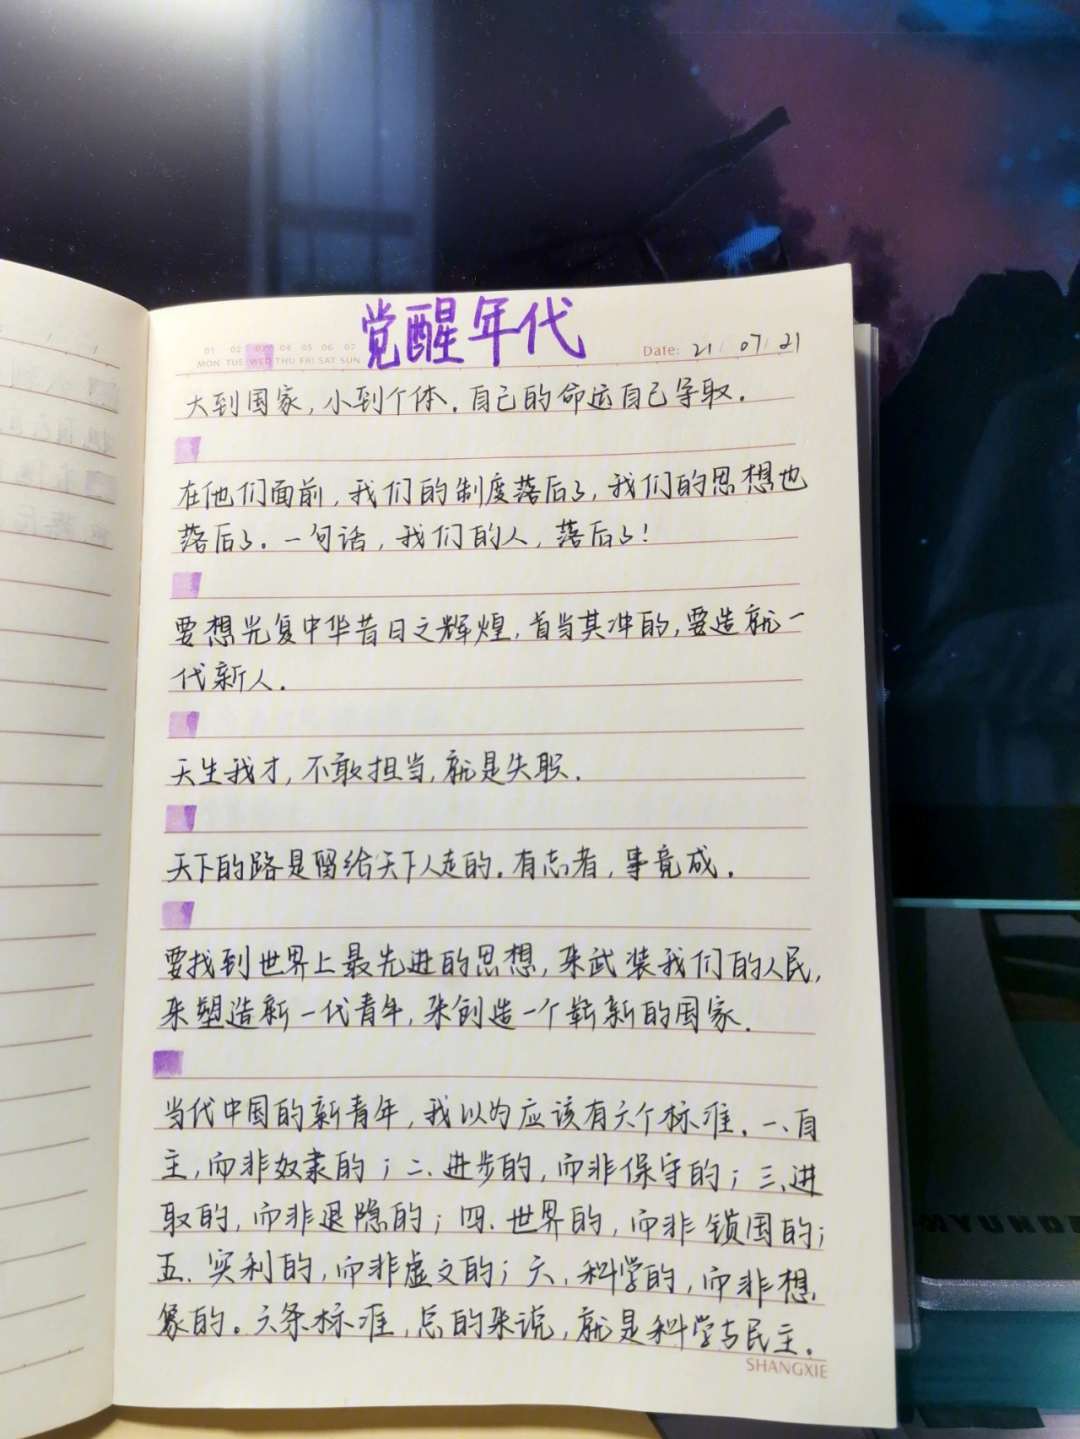 觉醒年代
01 02 03 04 05 06 07
MON TUE WED THU FRI SAT SUN
Date: 21 / 07 / 21
大到国家，小到个体．自己的命运自己争取．
在他们面前，我们的制度落后了，我们的思想也
落后了．一句话，我们的人，落后了！
要想光复中华昔日之辉煌，首当其冲的，要造就一
代新人．
天生我才，不敢担当，就是失职．
天下的路是留给天下人走的．有志者，事竟成．
要找到世界上最先进的思想，来武装我们的人民，
来塑造新一代青年，来创造一个崭新的国家．
当代中国的新青年，我以为应该有六个标准．一、自
主，而非奴隶的；二、进步的，而非保守的；三、进
取的，而非退隐的；四、世界的，而非锁国的；
五、实利的，而非虚文的；六、科学的，而非想
象的。六条标准，总的来说，就是科学与民主．
SHANGXIE